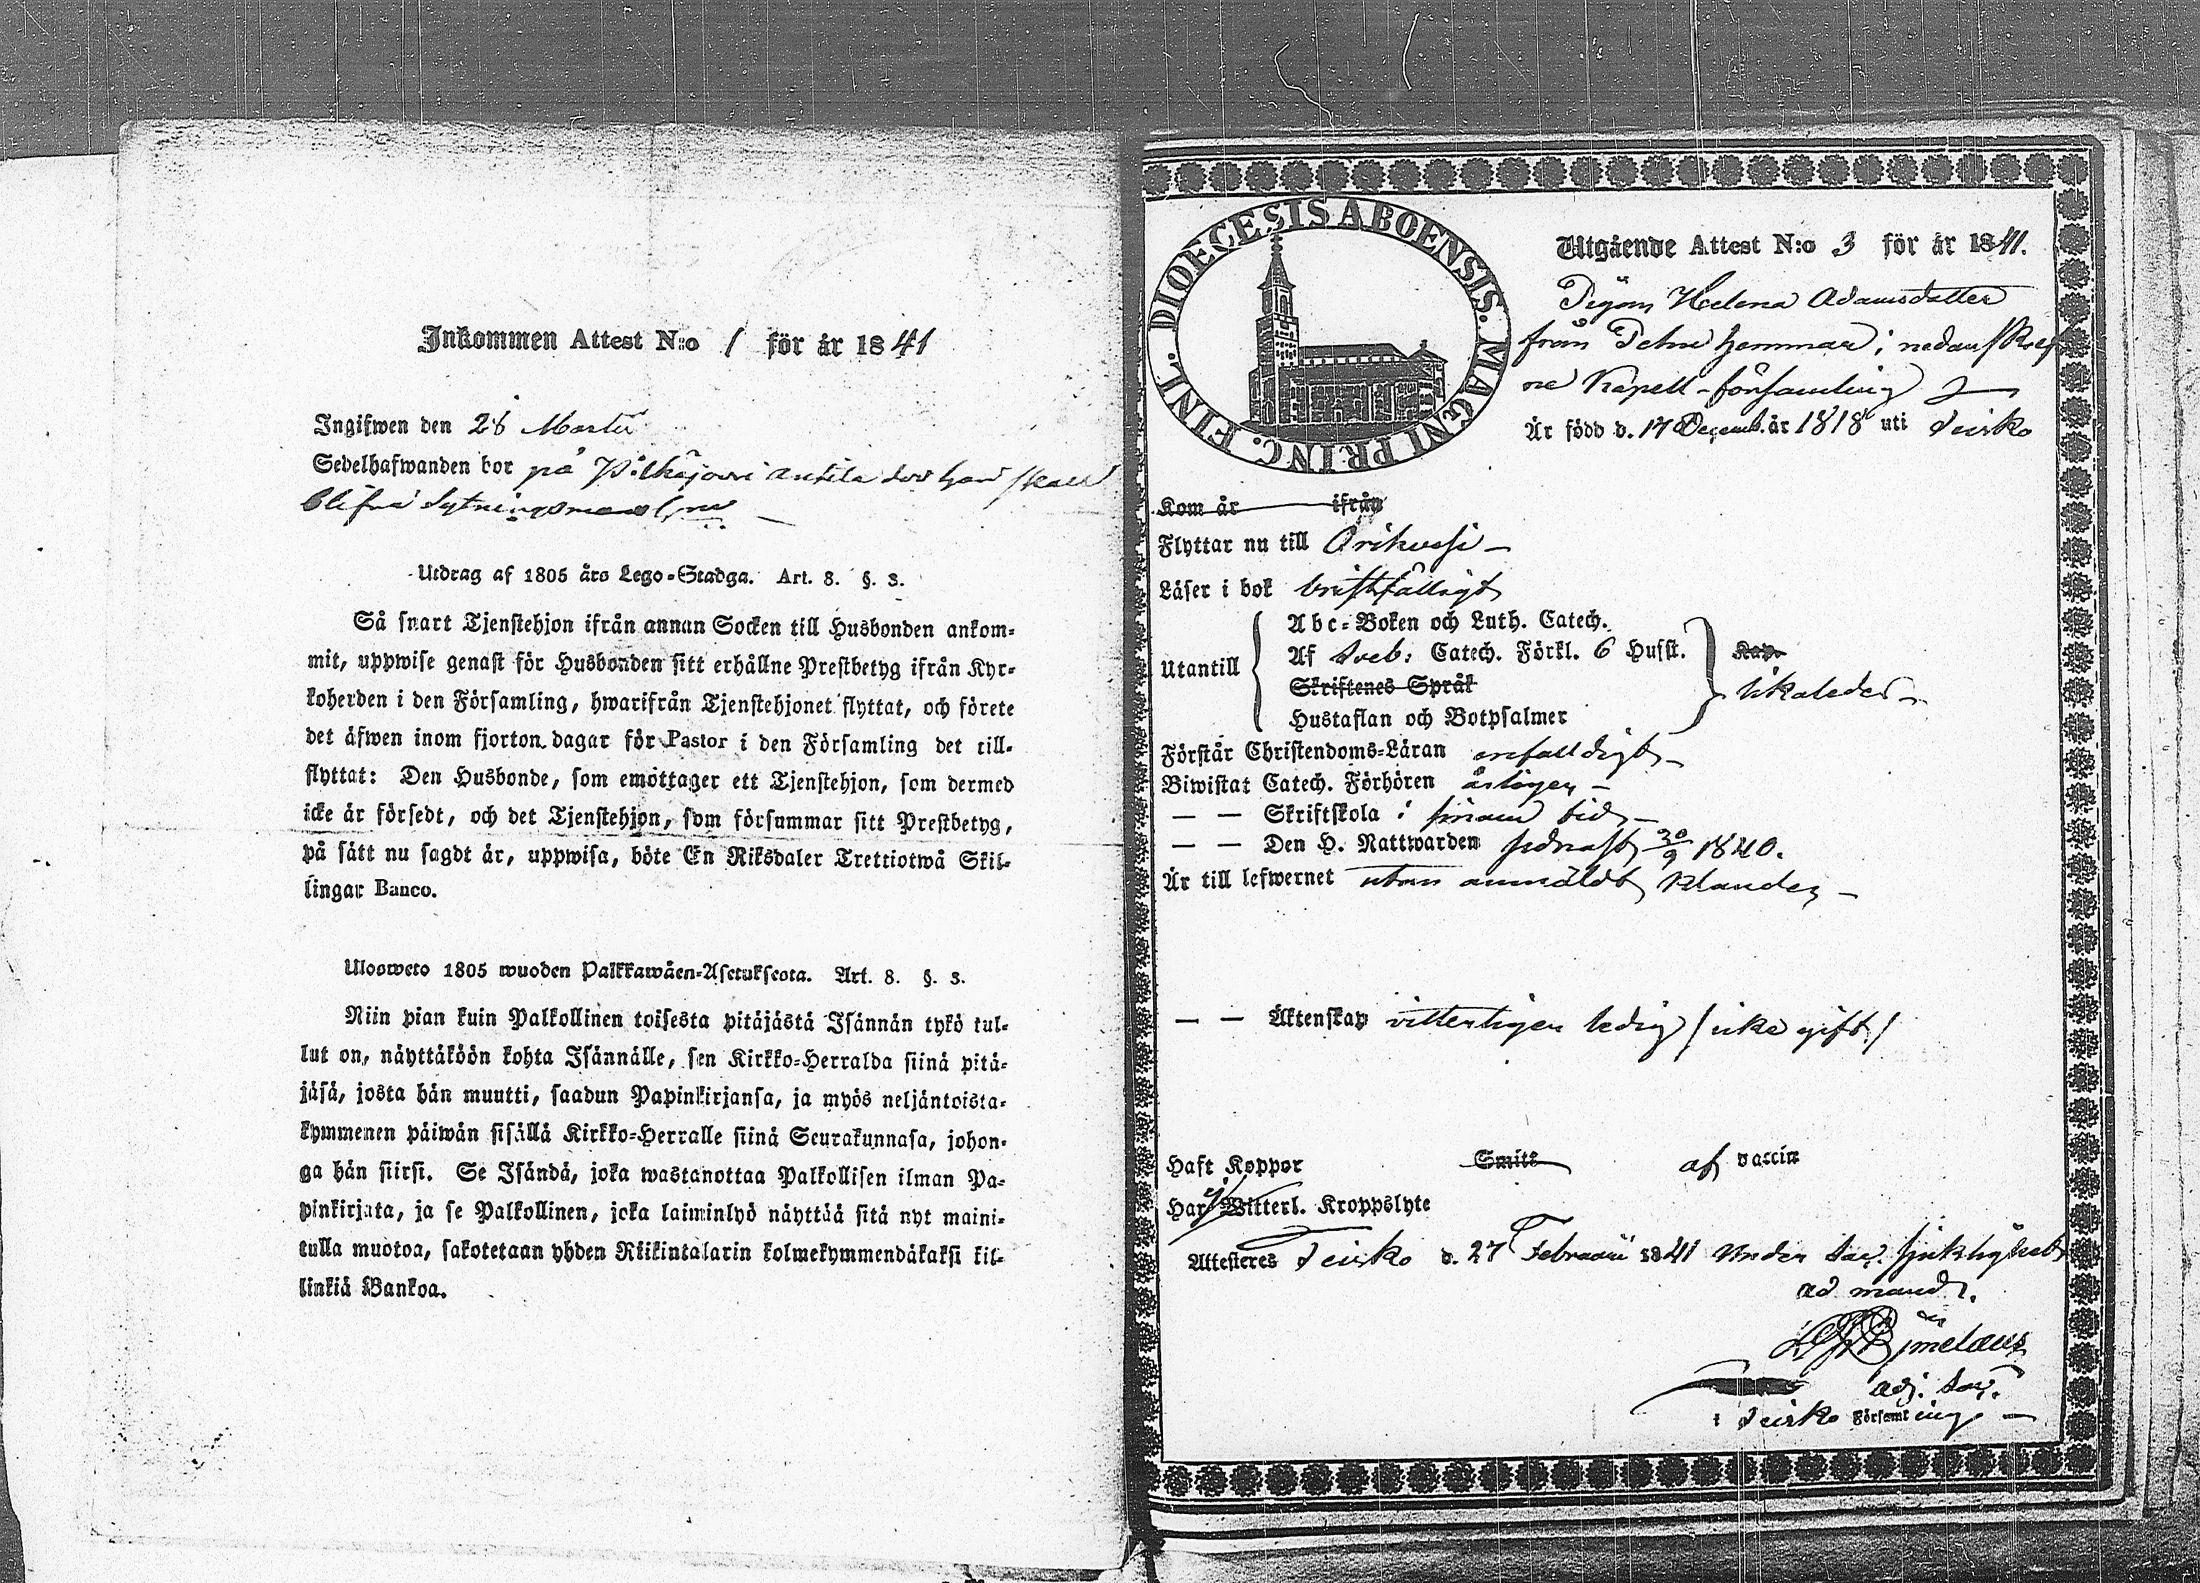 Inkommen Attest N:o 1 för år 1841
Ingifwen den 28 Martii
Sedelhafwanden bor på Pitkäjärvi Anttila der hon skall
blifva Sytningsmans
Utdrag af 1805 års Lego-Stadga. Art. 8. §. 3.
Så snart Tjenstehjon ifrån annan Socken till Husbonden ankom-
mit, uppwise genast för Husbonden sitt erhållne Prestbetyg ifrån Kyr-
koherden i den Församling, hwarifrån Tjenstehjonet flyttat, och förete
det äfwen inom fjorton dagar för Pastor i den Församling det till-
flyttat: Den Husbonde, som emottager ett Tjenstehjon, som dermed
icke är försedt, och det Tjenstehjon, som försummar sitt Prestbetyg,
på sätt nu sagdt är, uppwisa, böte En Riksdaler Trettiotwå Skil-
lingar Banco.
Ulosweto 1805 wuoden Palkkawäen-Asetuksesta. Art. 8. §. 3.
Niin pian kuin Palkollinen toisesta pitäjästä Isännän tykö tul-
lut on, näyttäköön kohta Isännälle, sen Kirkko-Herralda siinä pitä-
jäsä, josta hän muutti, saadun Papinkirjansa, ja myös neljäntoista-
kymmenen päiwän sisällä Kirkko-Herralle siinä Seurakunnasa, johon-
ga hän siirsi. Se Isändä, joka wastanottaa Palkollisen ilman Pa-
pinkirjata, ja se Palkollinen, joka laiminlyö näyttää sitä nyt maini-
tulla muotoa, sakotetaan yhden Riikintalarin kolmekymmendäkaksi kil-
linkiä Bankoa.
DIOECESIS ABOENSIS. MAGNI PRINC. FINL.
Utgående Attest N:o 3 för år 1841.
Pigan Helena Adamsdotter
från hemman i nedanskref
ne Kapell-församling
Är född d. 17 Decemb. år 1818 uti Teisko
Kom år ifrån
Flyttar nu till Orihvesi
Läser i bok bristfälligt
Utantill
Abc-Boken och Luth. Catech.
Af Sveb: Catech. Förkl. 6 Hufst.
Skriftenes Språk
Hustaflan och Botpsalmer
likaledes
Förstår Christendoms-Läran enfaldigt
Biwistat Catech. Förhören årligen
— — Skriftskola i sinom tid
— — Den H. Nattwarden sednast 20/9 1840.
Är till lefwernet utan anmäldt klander
— — Äktenskap vitterligen ledig / icke gift /
Haft Koppor Smitt af vaccin
Har ej Witterl. Kroppslyte
Attesteres Teisko d. 27 Februarii 1841 Under Sac. sjuklighet
ad mand.
adj. Sac.
i Teisko Församling